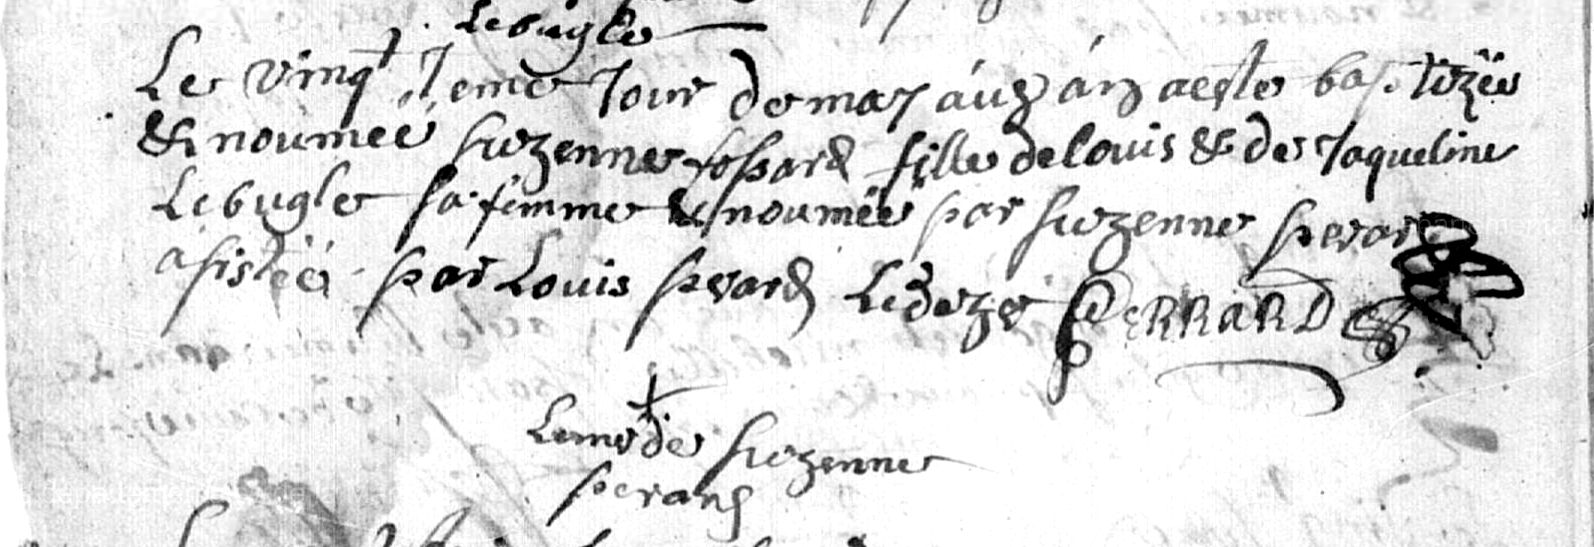 Lebugle
Le vingt Ieme Jour de may aud an a este baptizée
& noumée Suzenne fossard fille de Louis & de Jaqueline
Lebugle sa femme & noumée par Suzenne perard
asistée par Louis perard Ledeze PERRARD
Lemr de Suzenne
perard